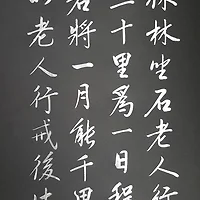 林坐石老人行
十里爲一日程
若將一月能千里
老人行戒後